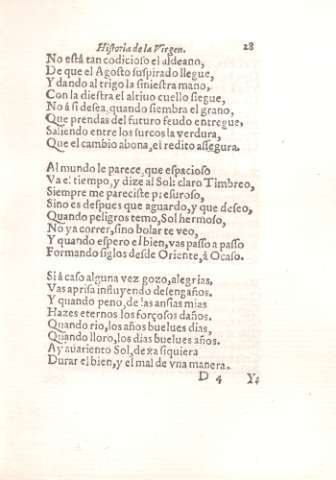 Historia de la Virgen. 28
No está tan codicioso el aldeano,
De que el Agosto suspirado llegue,
Y dando al trigo la siniestra mano,
Con la diestra el altiuo cuello siegue,
No á si desea, quando siembra el grano,
Que prendas del futuro feudo entregue,
Saliendo entre los surcos la verdura,
Que el cambio abona, el redito assegura.
Al mundo le parece, que espacioso
Va el tiempo, y dize al Sol: claro Timbreo,
Siempre me pareciste presuroso,
Sino es despues que aguardo, y que deseo,
Quando peligros temo, Sol hermoso,
No ya correr, sino bolar te veo,
Y quando espero el bien, vas passo a passo
Formando siglos desde Oriente, á Ocaso.
Si á caso alguna vez gozo, alegrias,
Vas aprisa influyendo desengaños.
Y quando peno, de las ansias mias
Hazes eternos los forçosos daños.
Quando rio, los años buelues dias,
Quando lloro, los dias buelues años.
Ay auariento Sol, dexa siquiera
Durar el bien, y el mal de vna manera.
D 4 Ya